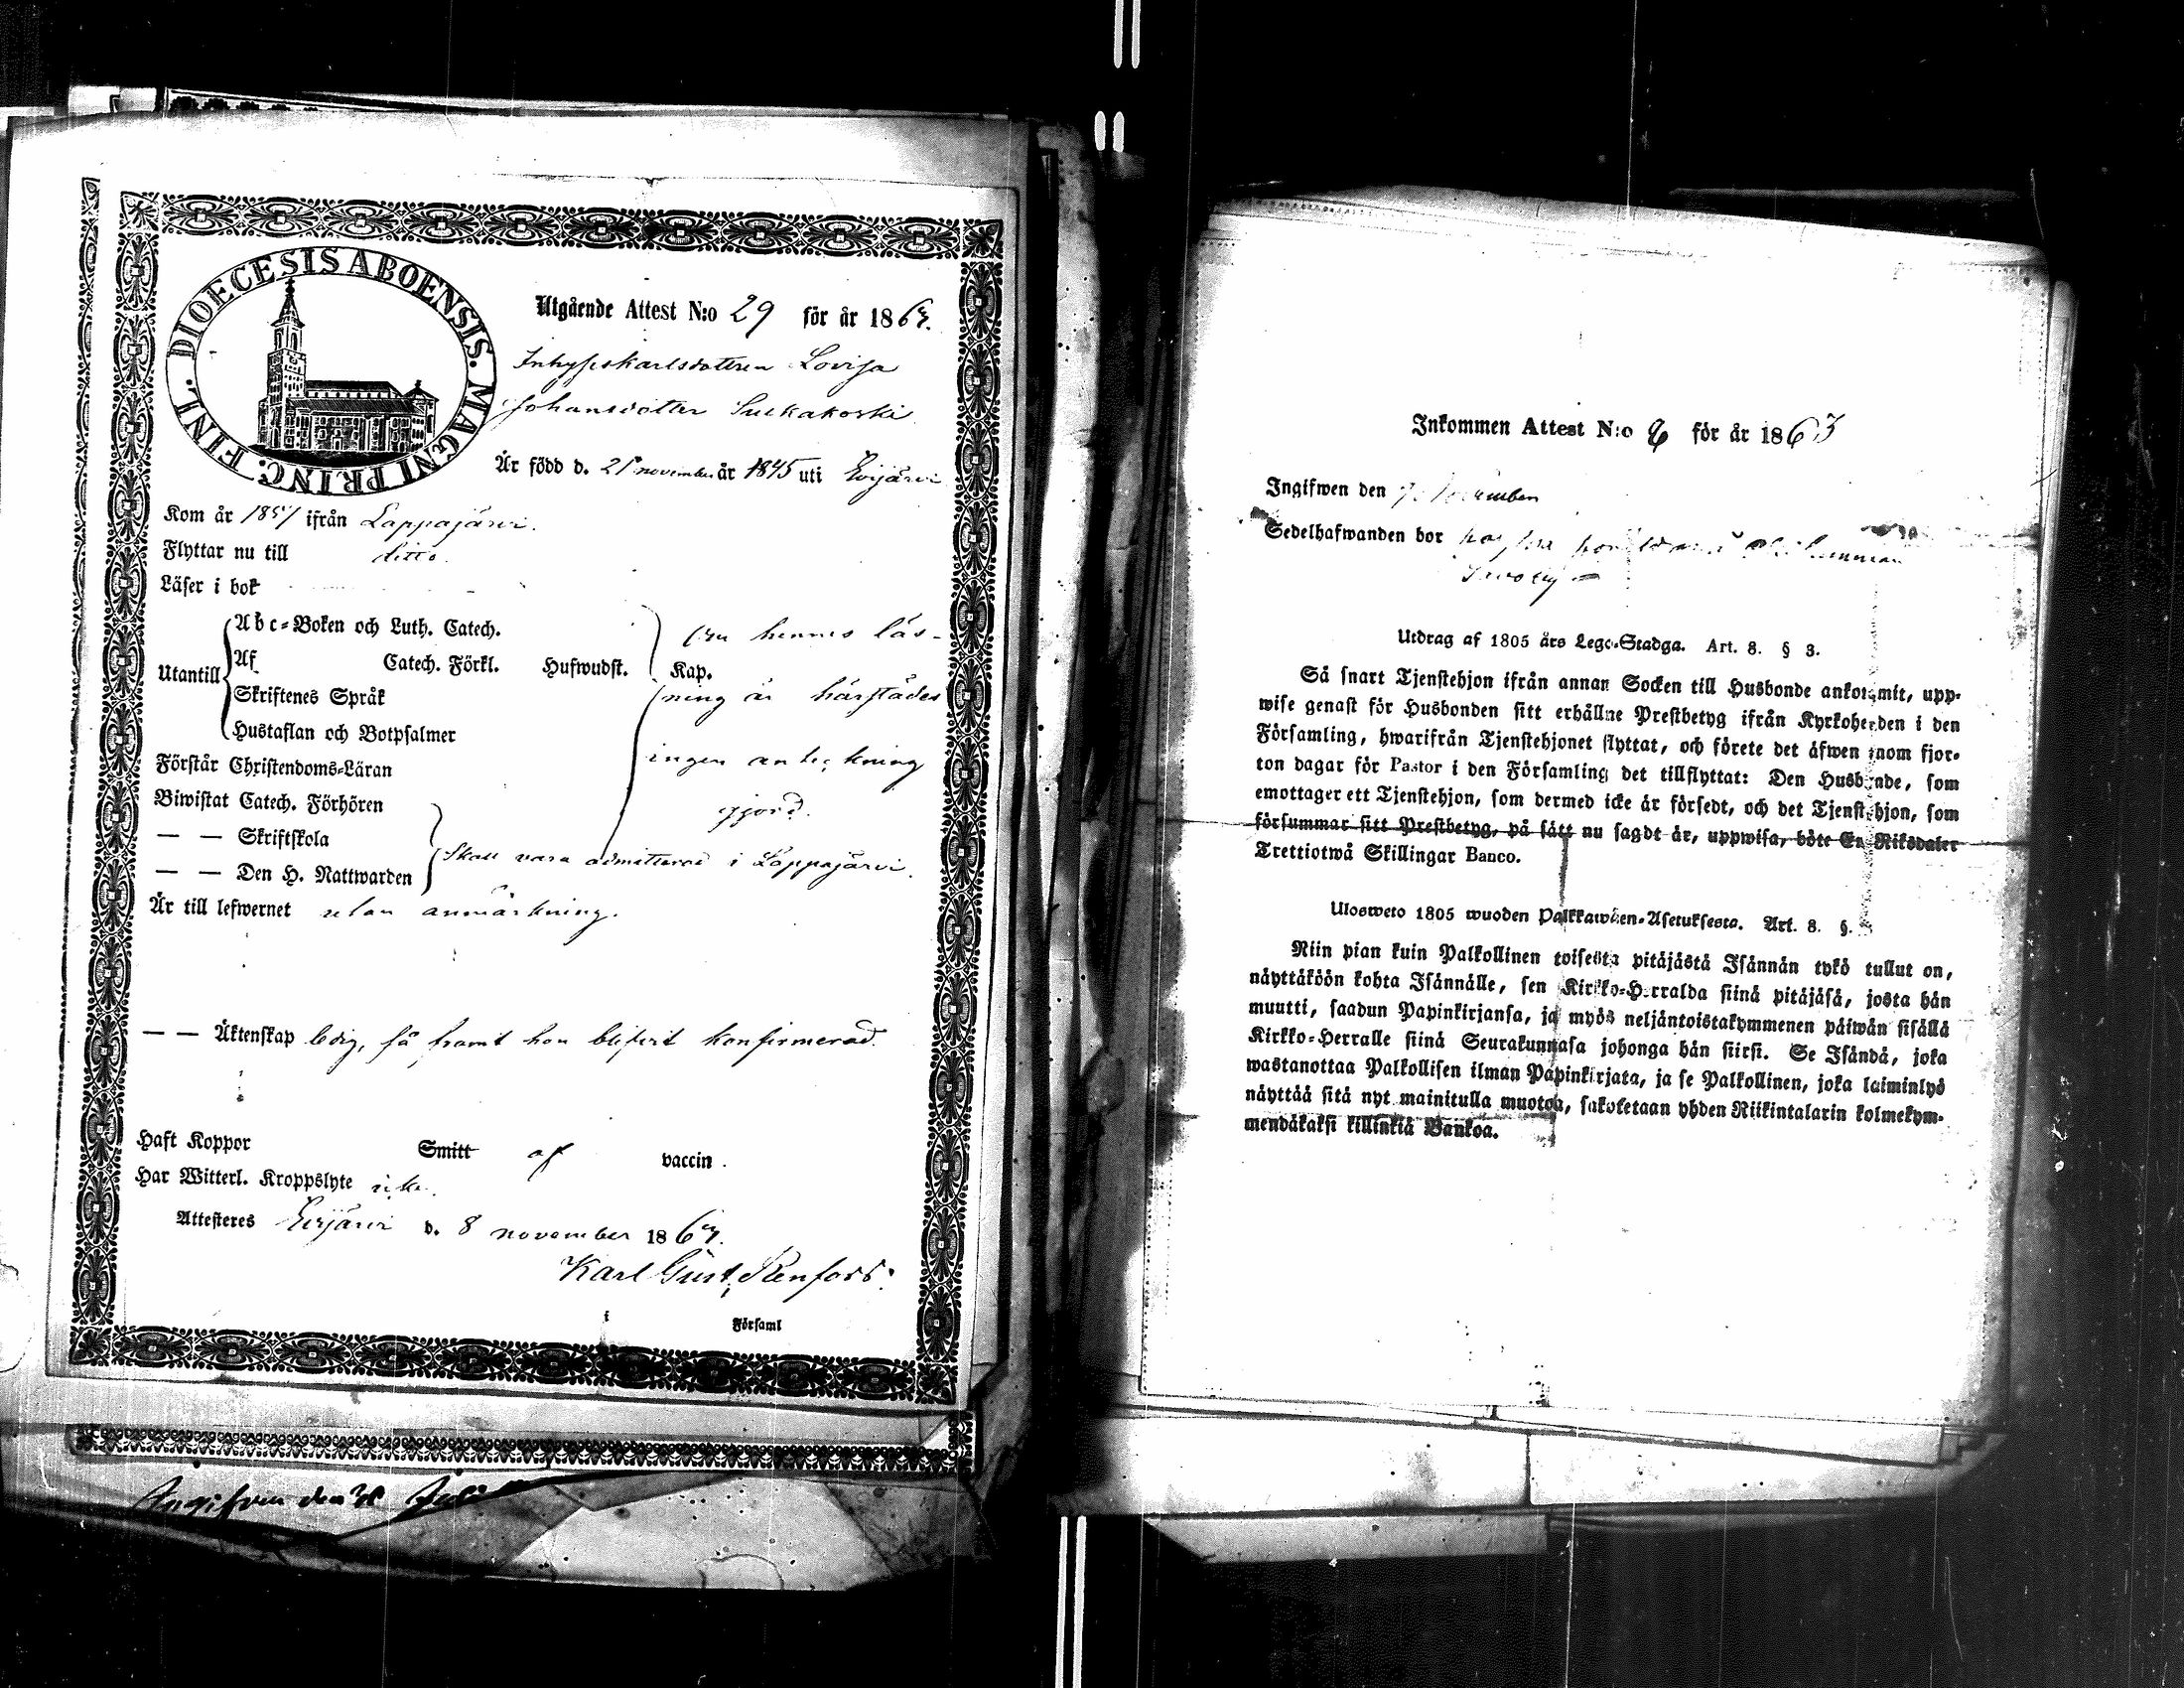 DIOECESIS ABOENSIS. MAGNI PRINC. FINL.
Utgående Attest N:o 29 för år 1863.
Inhyseskarlsdottren Lovisa
Johansdotter Suckakoski
Är född d. 21 november år 1845 uti Evijärvi
Kom år 1857 ifrån Lappajärvi.
Flyttar nu till ditto.
Läser i bok
Utantill
Abc-Boken och Luth. Catech.
Af Catech. Förkl. Hufwudst. Kap.
Skriftenes Språk
Hustaflan och Botpsalmer
om hennes läs-
ning är härstädes
ingen anteckning
gjord.
Förstår Christendoms-Läran
Biwistat Catech. Förhören
— — Skriftskola
— — Den H. Nattwarden
Skall vara admitterad i Lappajärvi.
Är till lefwernet utan anmärkning.
— — Äktenskap ledig, så framt hon blifvit konfirmerad.
Haft Koppor Smitt af vaccin.
Har Witterl. Kroppslyte icke.
Attesteres Evijärvi d. 8 november 1863.
Karl Gust. Renfors.
Församl
Ingifven den 30 Juli
Inkommen Attest N:o för år 1863
Ingifwen den November
Sedelhafwanden bor
Utdrag af 1805 års Lego-Stadga. Art. 8. § 3.
Så snart Tjenstehjon ifrån annan Socken till Husbonde ankommit, upp-
wise genast för Husbonden sitt erhållne Prestbetyg ifrån Kyrkoherden i den
Församling, hwarifrån Tjenstehjonet flyttat, och förete det äfwen inom fjor-
ton dagar för Pastor i den Församling det tillflyttat: Den Husbonde, som
emottager ett Tjenstehjon, som dermed icke är försedt, och det Tjenstehjon, som
försummar sitt Prestbetyg, på sätt nu sagdt är, uppwisa, böte En Riksdaler
Trettiotwå Skillingar Banco.
Ulosweto 1805 wuoden Palkkawäen-Asetuksesta. Art. 8. §.
Niin pian kuin Palkollinen toisesta pitäjästä Isännän tykö tullut on,
näyttäköön kohta Isännälle, sen Kirkko-Herralda siinä pitäjäsä, josta hän
muutti, saadun Papinkirjansa, ja myös neljäntoistakymmenen päiwän sisällä
Kirkko-Herralle siinä Seurakunnasa johonga hän siirsi. Se Isändä, joka
wastanottaa Palkollisen ilman Papinkirjata, ja se Palkollinen, joka laiminlyö
näyttää sitä nyt mainitulla muotoa, sakotetaan yhden Riikintalarin kolmekym-
mendäkaksi killinkiä Bankoa.